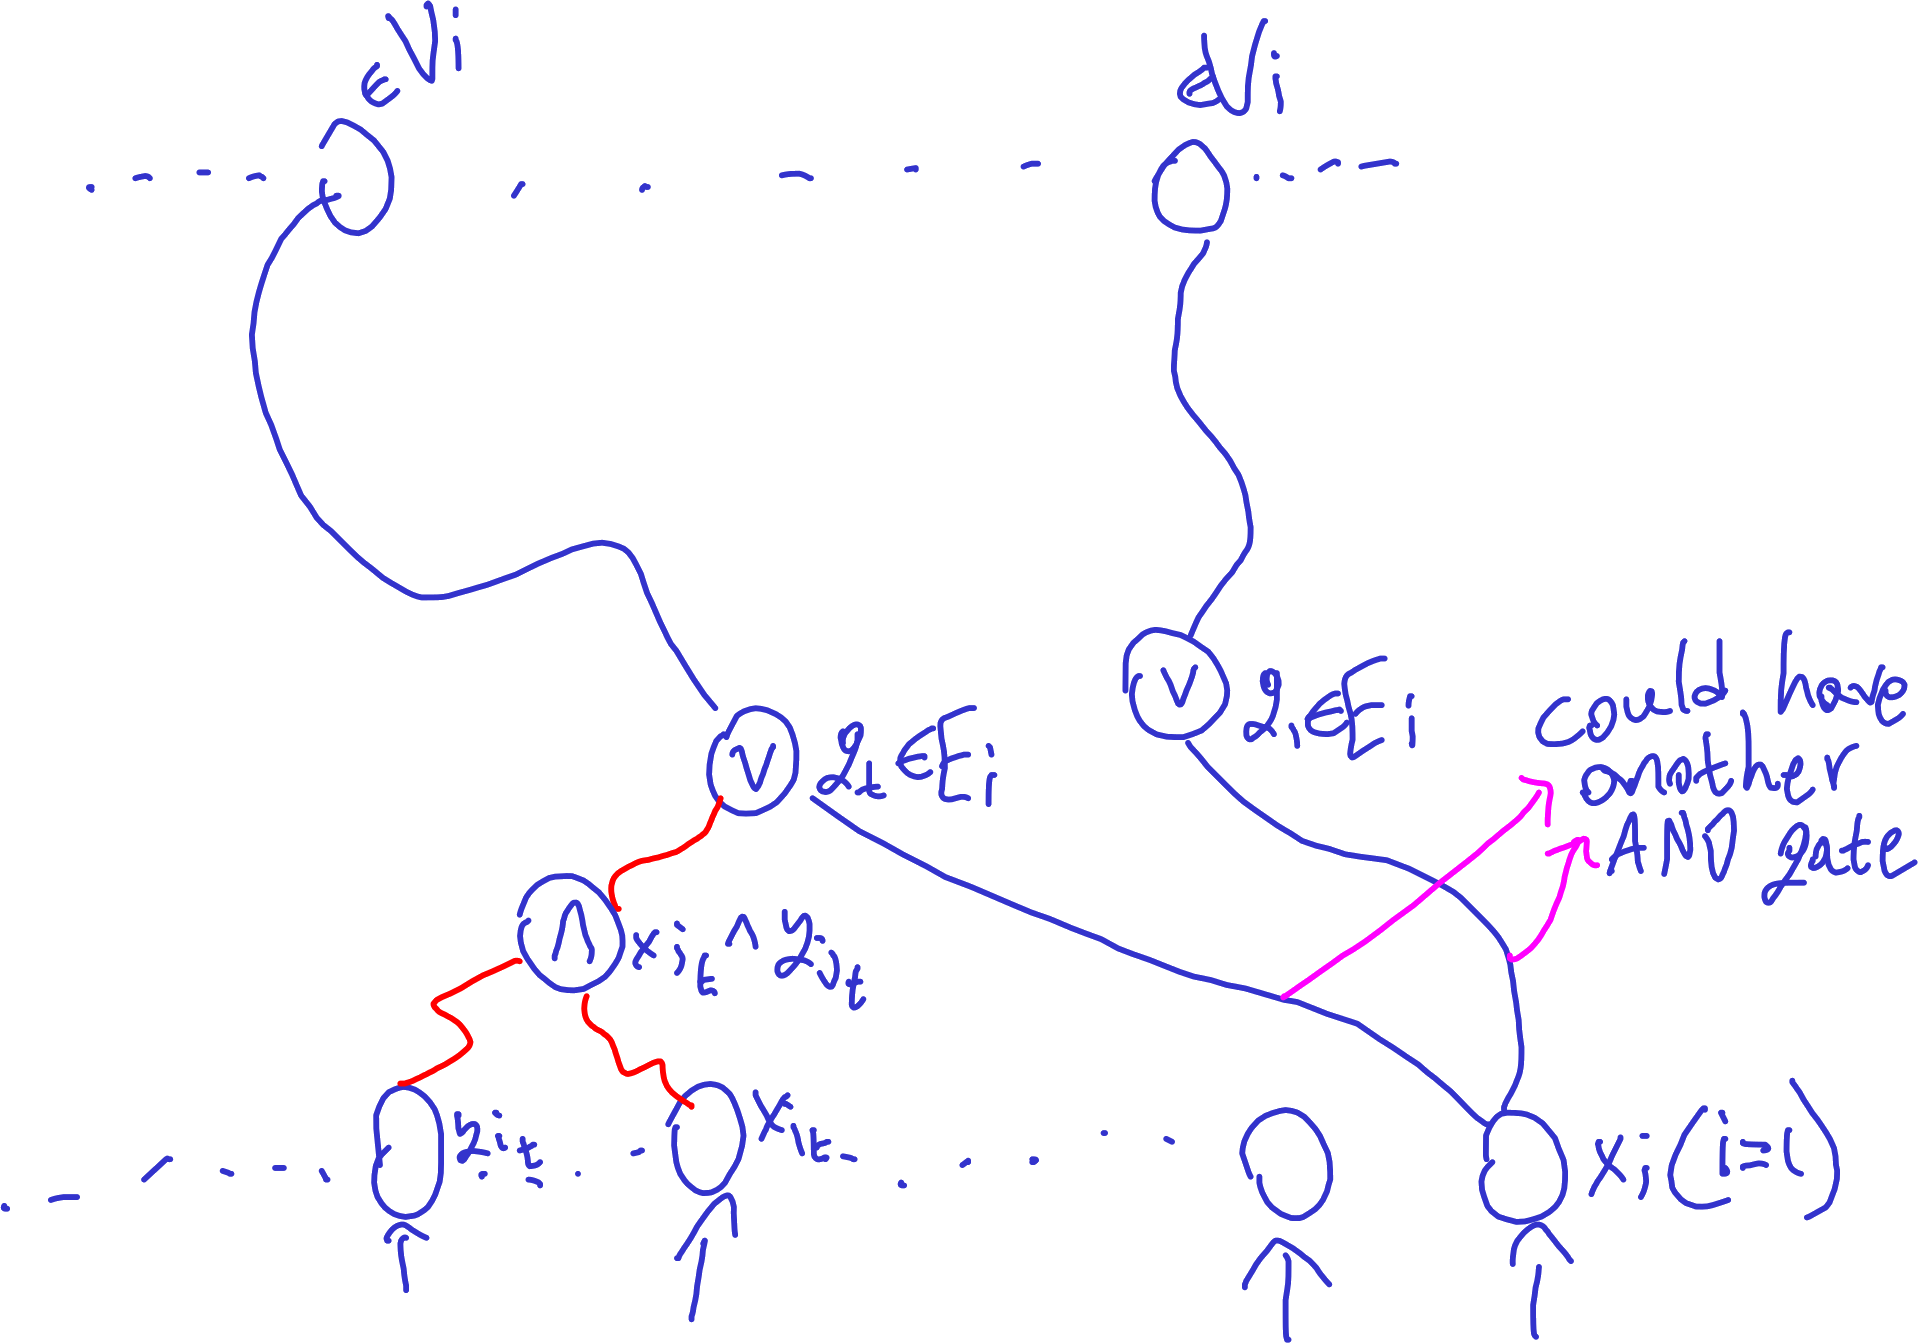 ∈ Vi
∈ Vi
V
g_t ∈ E_i
V
g_i ∈ E_i
could have
another
AND gate
Λ
x_{i_t} ∧ y_{i_t}
y_{i_t}
x_{i_t}
x_i (i=1)